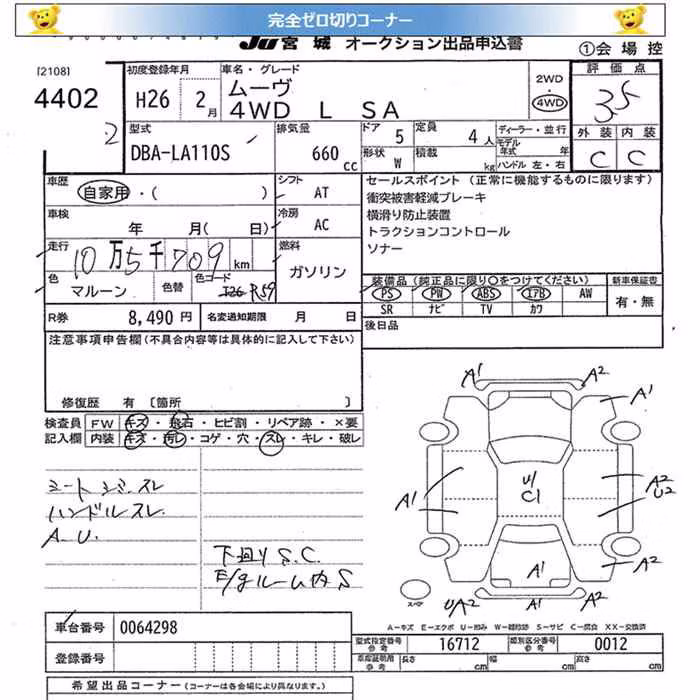 完全ゼロ切りコーナー
JU 宮城 オークション出品申込書
①会場控
[2108]
4402
初度登録年月
H26 2月
車名・グレード
ムーヴ
4WD L SA
2WD
・
4WD
評価点
3.5
外装 内装
C C
型式
DBA-LA110S
排気量
660 cc
ドア 5
形状 W
定員 4人
積載 kg
ディーラー・並行
モデル年式 年
ハンドル 左・右
車歴
自家用・( )
シフト
AT
車検
年 月( 日)
冷房
AC
走行
10万5千709km
燃料
ガソリン
色
マルーン
色替
色コード
R59
R券 8,490円
名変通知期限 月 日
セールスポイント (正常に機能するものに限ります)
衝突被害軽減ブレーキ
横滑り防止装置
トラクションコントロール
ソナー
装備品(純正品に限り○をつけてください)
PS PW ABS エアB AW
SR ナビ TV カワ
新車保証書
有・無
後日品
注意事項申告欄(不具合内容等は具体的に記入して下さい)
修復歴 有〔箇所 〕
検査員記入欄
FW キズ・飛石・ヒビ割・リペア跡・×要
内装 キズ・汚レ・コゲ・穴・スレ・キレ・破レ
シートシミスレ
ハンドルスレ
A.U.
下廻りS.C.
E/gルーム内S
A1 A2
A1
A1
U1
C1
A2
U2
A1
A2
スペア
UA2 A1 A2
A-キズ E-エクボ U-凹み W-補修跡 S-サビ C-腐食 XX-交換済
車台番号 0064298
登録番号
型式指定番号 参考 16712
類別区分番号 参考 0012
車庫証明用 参考 長さ cm 幅 cm 高さ cm
希望出品コーナー (コーナーは各会場により異なります。)